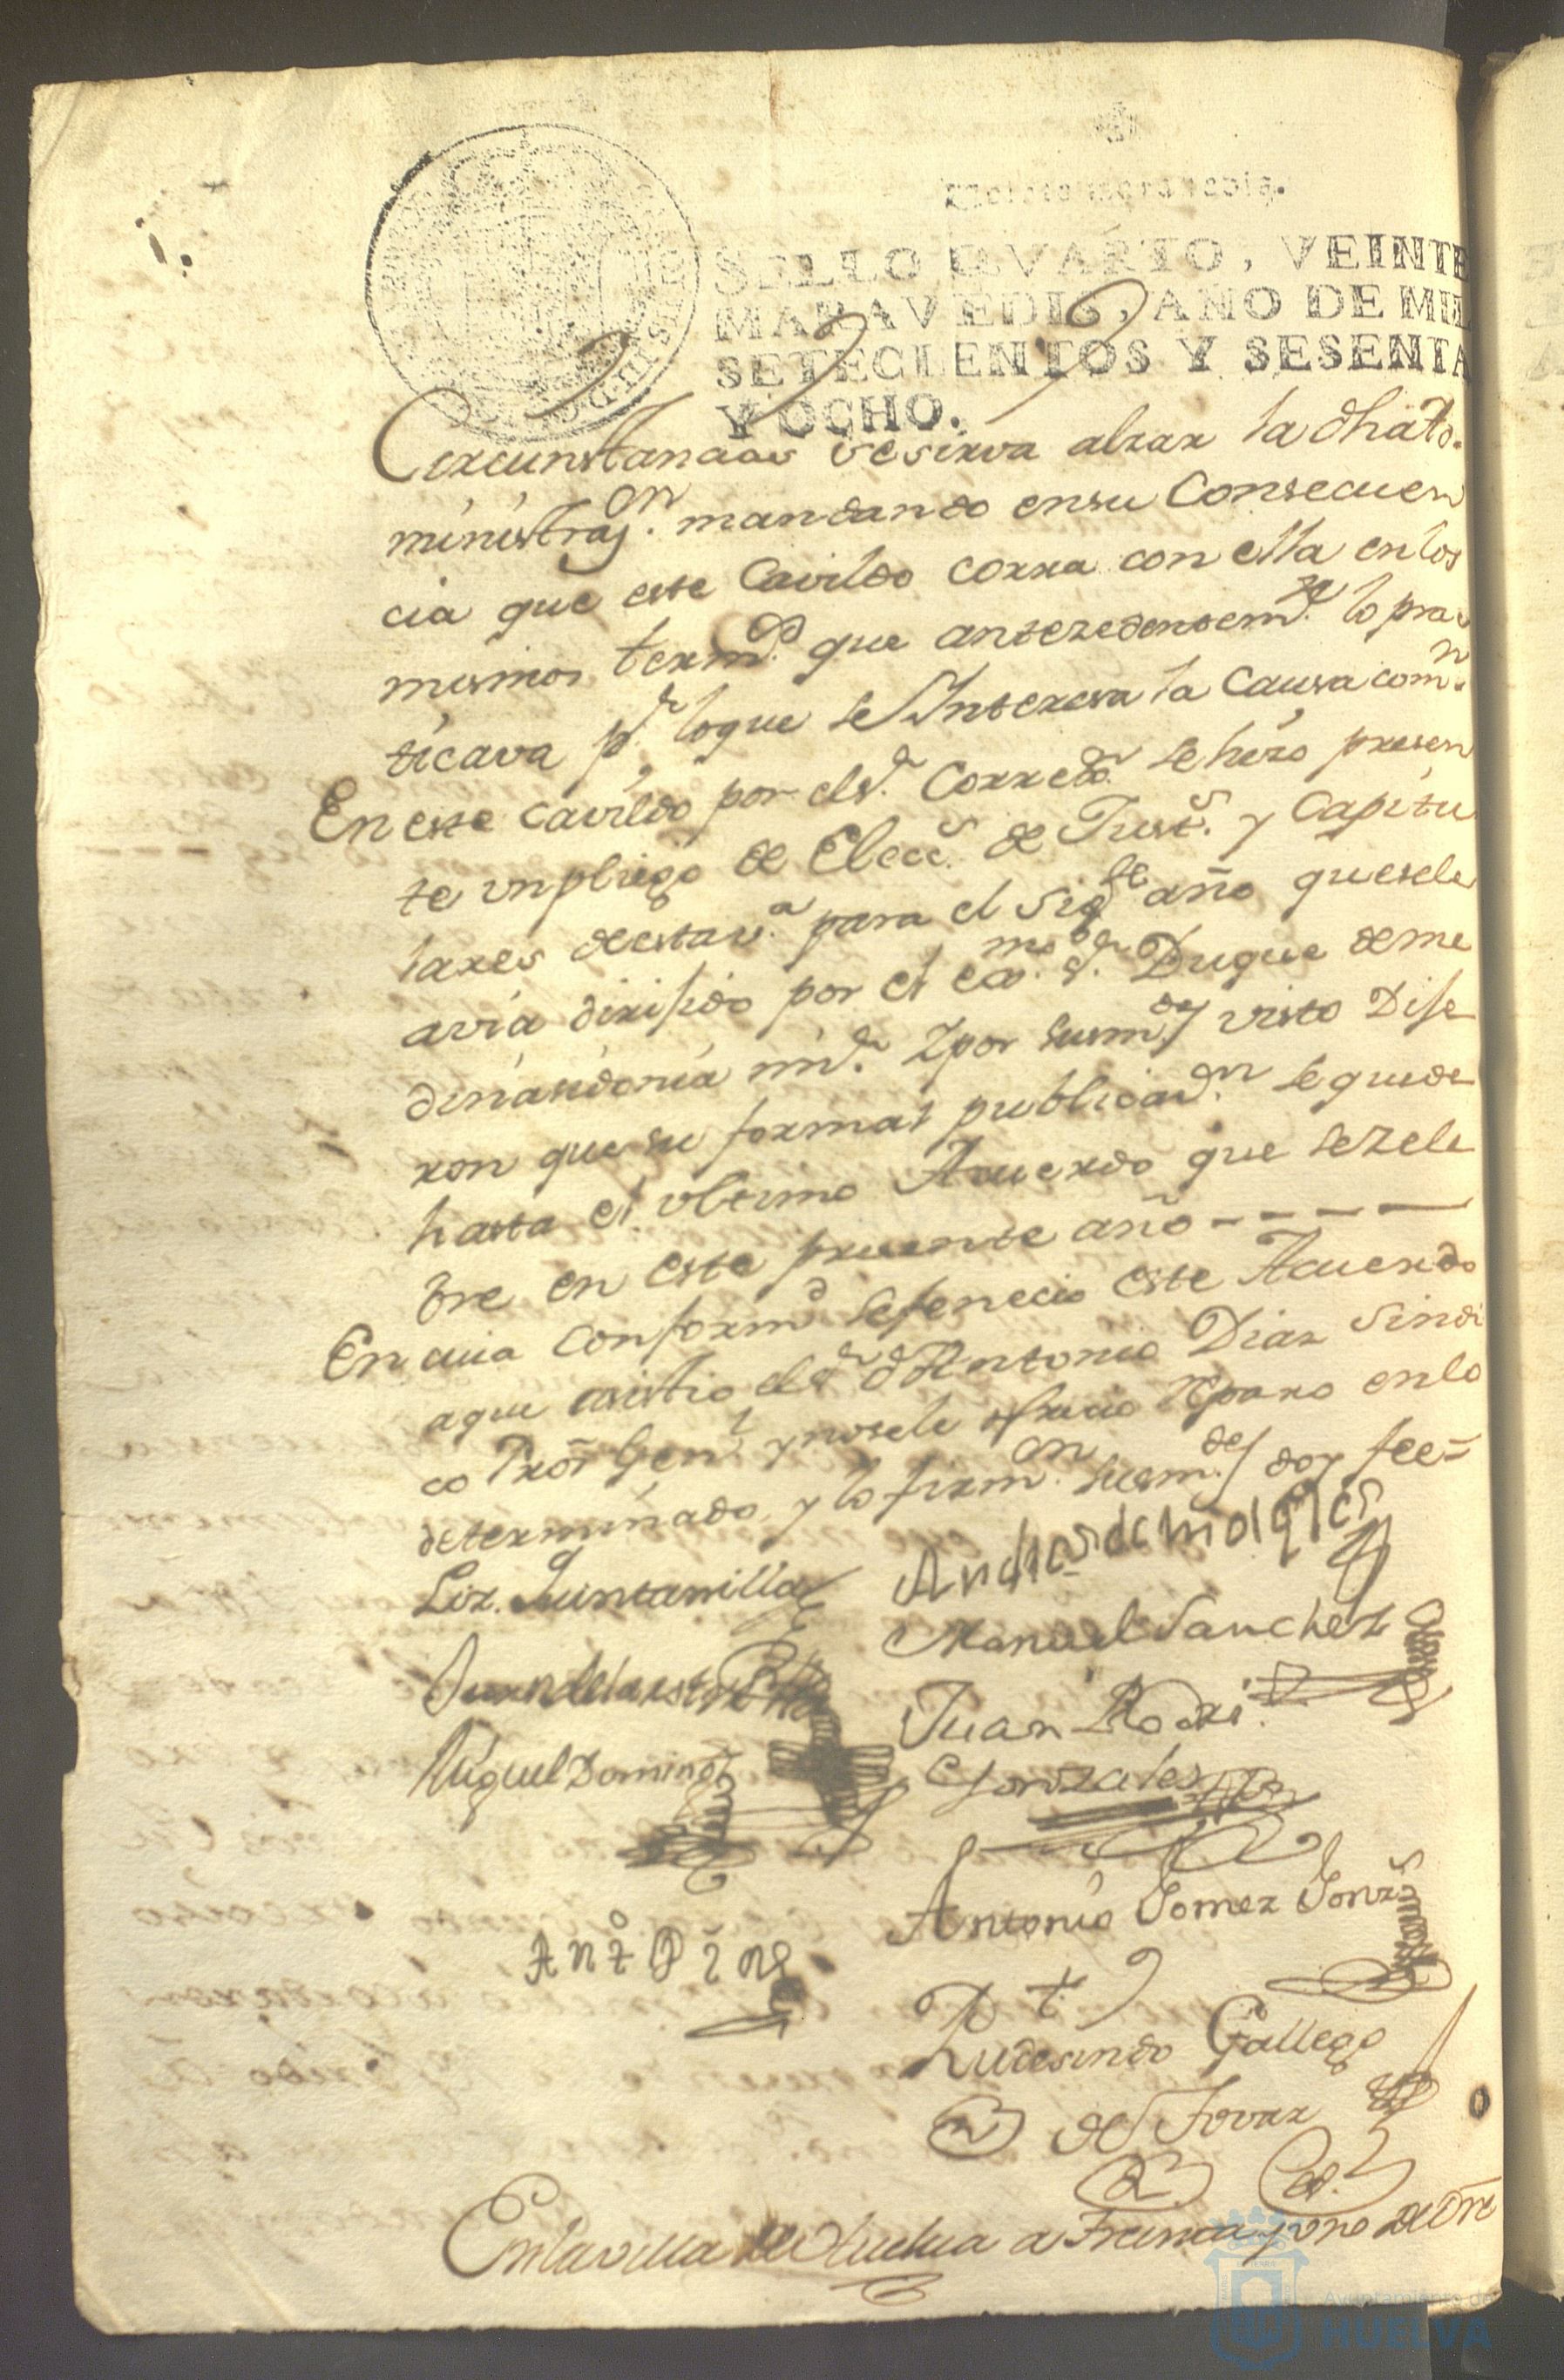 Veinte maravedis.
SELLO QVARTO, VEINTE
MARAVEDIS, AÑO DE MIL
SETECIENTOS Y SESENTA
Y OCHO.
Circunstancias se sirva alzar la dha Ad.
ministraz.on mandando en su Consecuen
cia que este Cavildo corra con ella en los
mismos term.os que antezedentem.te lo prac
ticava p.r loque se Interesa la Causa com.n
En este cavildo por el s.r Corred.r se hizo presen
te un pliego de Elecc.s de Just.s y Capitu
lares de esta v.a para el sig.te año que se le
avia dirijido por el ex.mo s.r Duque de me
dinasidonia mi s.r Y por sus m.des visto Dije
ron que su formaz publicaz.n se quede
hasta el ultimo Acuerdo que se zele
bre en este presente año - - - -
En cuia conform.d se fenecio este Acuerdo
a que asistio el s.r d.n Antonio Diaz Sindi
co Pror Gen.l y no se le ofrecio Reparo en lo
determinado y lo firm.on sus m.des doy fee=
Liz. Quintanilla
Andres de
Manuel Sanchez
Juan de la
Juan Rodri.
Miguel Doming.z
Gonzales
Antonio Gomez Gonz.s
Ant.o Diaz
Rudesindo Gallego
de Tovar
En la villa de Huelva a treinta y uno de Dre
Ayuntamiento de
HUELVA